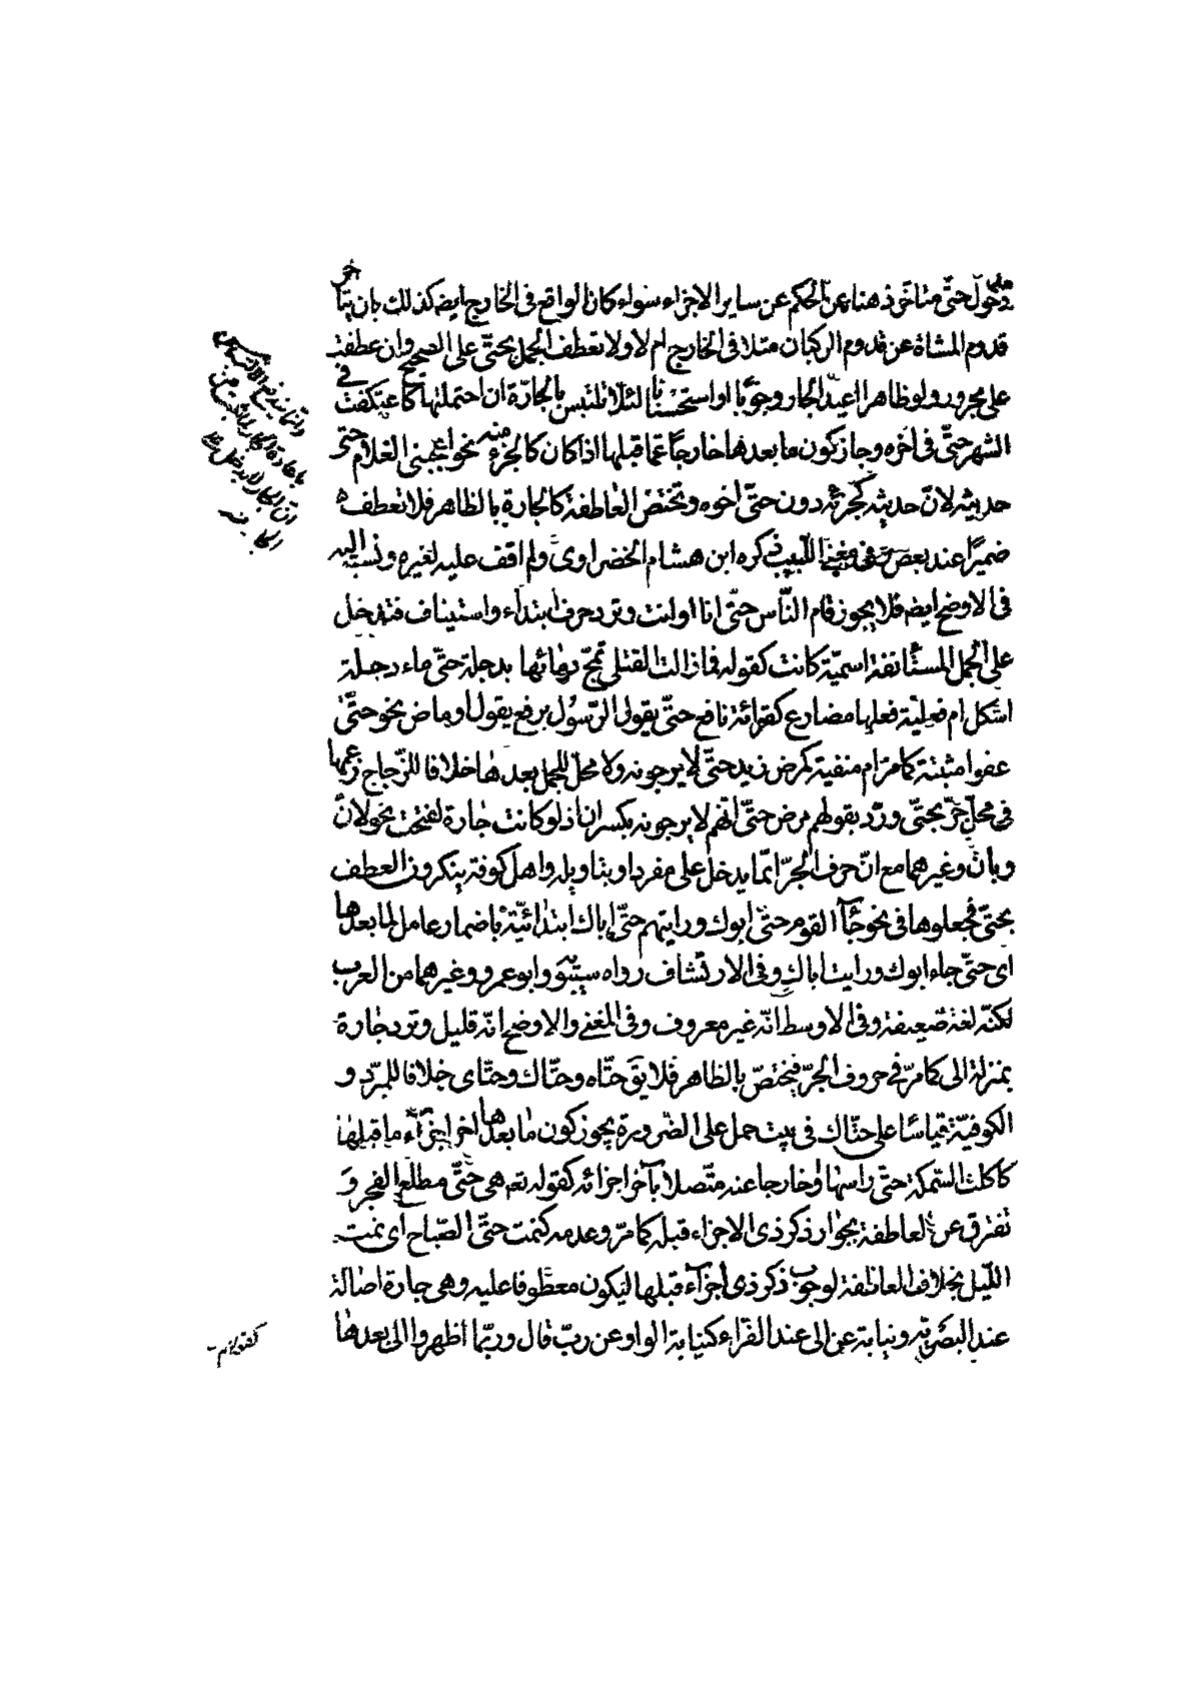 مدخول حتّى متأخّر ذهنا عن الحكم عن ساير الاجزاء سواء كان الواقع فى الخارج ايضه كذلك بان يتأخر
قدوم المشاة عن قدوم الركبان مثلا فى الخارج ام لا ولا تعطف الجمل بحتّى على الصحيح وان عطفت
على مجرور ولو ظاهرا اعيد الجار وجوبًا او استحسنانا لئلا تلتبس بالجارّة ان احتملتها كاعتكفت فى
الشهر حتّى فى اخره وجاز كون ما بعدها خارجًا عما قبلها اذا كان كالجزء منه نحو اعجبنى الغلام حتى
حديثه لانّ حديثه كجزئه دون حتّى اخوه وتختصّ العاطفة كالجارة بالظاهر فلا تعطف
ضميرًا عند بعض فى مغنى اللبيب ذكره ابن هشام الخضراوى ولم اقف عليه لغيره ونسبه اليه
فى الاوضح ايضه فلا يجوز قام النّاس حتّى انا او انت وترد حرف ابتداء واستيناف فتدخل
على الجمل المستأنفة اسميّة كانت كقوله فما زالت القتلى تمجّ دماءها بدجلة حتّى ماء دجلة
اشكل ام فعليّة فعلها مضارع كقرائة نافع حتّى يقول الرّسول برفع يقول او ماض نحو حتّى
عفوا مثبتة كما مرّ ام منفية كمرض زيد حتّى لا يرجونه ولا محلّ للجمل بعدها خلافا للزّجاج زعمها
فى محلّ جرّ بحتّى وردّ بقولهم مرض حتّى انّهم لا يرجونه بكسر ان اذ لو كانت جارة لفتحت نحو لانّ
وبانّ وغيرهما مع انّ حرف الجرّ انّما يدخل على مفرد او بتاويله واهل كوفة ينكرون العطف
بحتّى فجعلوها فى نحو جاء القوم حتى ابوك ورايتهم حتّى اباك ابتدائيّة باضمار عامل لما بعدها
اى حتّى جاء ابوك ورايت اباك وفى الارتشاف رواه سيبويه وابو عمرو وغيرهما من العرب
لكنّه لغة ضعيفة وفى الاوسط انّه غير معروف وفى المغنى والاوضح انّه قليل وترد جارة
بمنزلة الى كما مرّ فى حروف الجرّ فيختصّ بالظاهر فلا يق حتّاه وحتّاك وحتّاى خلافا للمبرّد و
الكوفيّة قياسًا على حتّاك فى بيت حمل على الضّرورة يجوز كون ما بعدها اخر اجزاء ما قبلها
كاكلت السّمكة حتى راسها او خارجا عنه متّصلا بآخر اجزائه كقوله تعه هى حتّى مطلع الفجر و
تفترق عن العاطفة بجواز ذكر ذى الاجزاء قبله كما مرّ وعدمه كنمت حتّى الصّباح اى نمت
اللّيل بخلاف العاطفة لوجوب ذكر ذى اجزاء قبلها ليكون معطوفا عليه وهى جارة اصالة
عند البصريّه ونيابة عن الى عند الفرّاء كنيابة الواو عن ربّ قال وربّما اظهروا الى بعدها
كقولهم